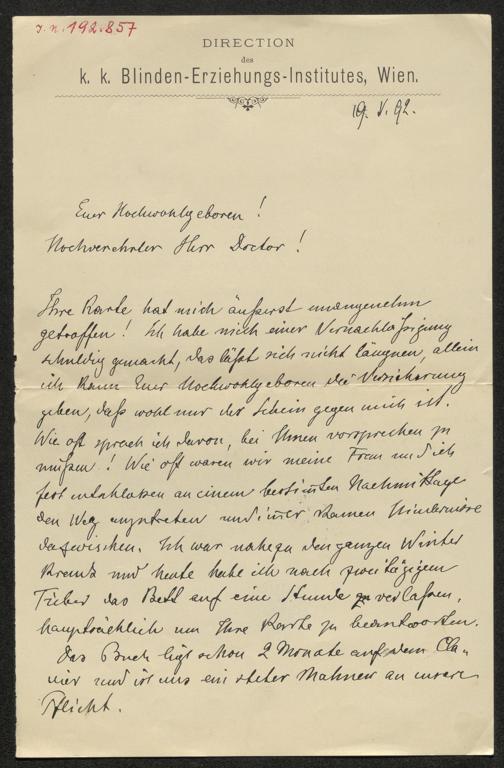 I. N. 192.857
DIRECTION
des
k. k. Blinden-Erziehungs-Institutes, Wien.
19. V. 92.
Euer Hochwohlgeboren!
Hochverehrter Herr Doctor!
Ihre Karte hat mich äußerst unangenehm
getroffen! Ich habe mich einer Vernachläßigung
schuldig gemacht, das läßt sich nicht läugnen, allein
ich kann Euer Hochwohlgeboren die Versicherung
geben, daß wohl nur der Schein gegen mich ist.
Wie oft sprach ich davon, bei Ihnen vorsprechen zu
müßen! Wie oft waren wir meine Frau und ich
fest entschlossen an einem bestim̄ten Nachmittage
den Weg anzutreten und im̄er kamen Hindernisse
dazwischen. Ich war nahezu den ganzen Winter
krank und heute habe ich nach zweitägigem
Fieber das Bett auf eine Stunde verlaßen,
hauptsächlich um Ihre Karte zu beantworten.
Das Buch ligt schon 2 Monate auf dem Cla-
vier und ist uns ein steter Mahner an unsere
Pflicht.